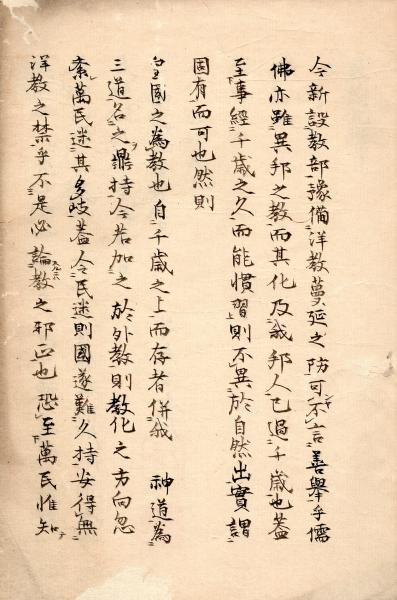 今新設教部豫備洋教蔓延之防可不言善舉乎儒
佛亦雖異邦之教而其化及我邦人已過千歳也蓋
至事經千歳之久而能慣習則不異於自然出實謂
固有而可也然則
皇國之為教也自千歳之上而存者併我 神道為
三道名之鼎持今若加之於外教則教化之方向忽
紊萬民迷其多岐蓋令民迷則國遂難久持安得無
洋教之禁乎不是必論教之邪正也恐至萬民惟知